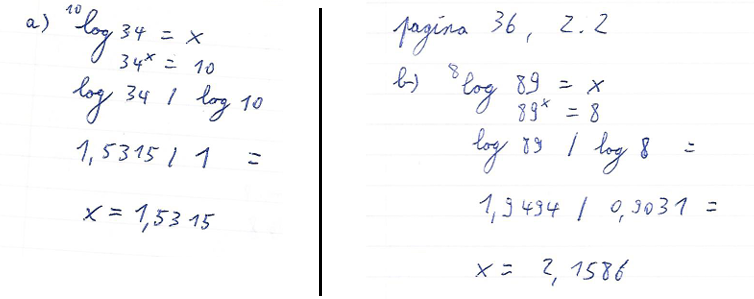 a) ¹⁰log 34 = x
34ˣ = 10
log 34 / log 10
1,5315 / 1 =
x = 1,5315
pagina 36, 2.2
b) ⁸log 89 = x
89ˣ = 8
log 89 / log 8 =
1,9494 / 0,9031 =
x = 2,1586